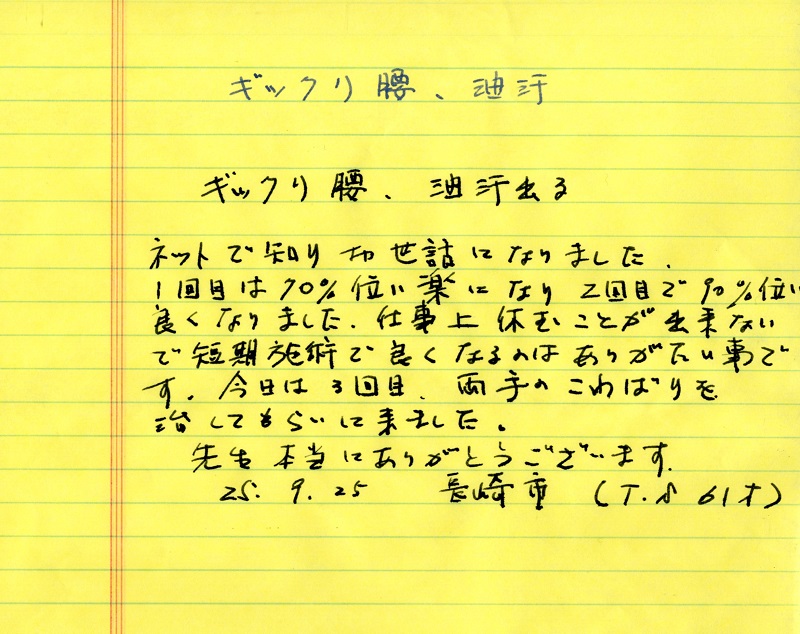 ギックリ腰、油汗
ギックリ腰、油汗出る
ネットで知りお世話になりました.
1回目は70%位い楽になり 2回目で90%位い
良くなりました. 仕事上休むことが出来ない
で短期施術で良くなるのはありがたい事で
す. 今日は3回目. 両手のこわばりを
治してもらいに来ました。
先生本当にありがとうございます.
25. 9. 25 長崎市 (T.S 61才)